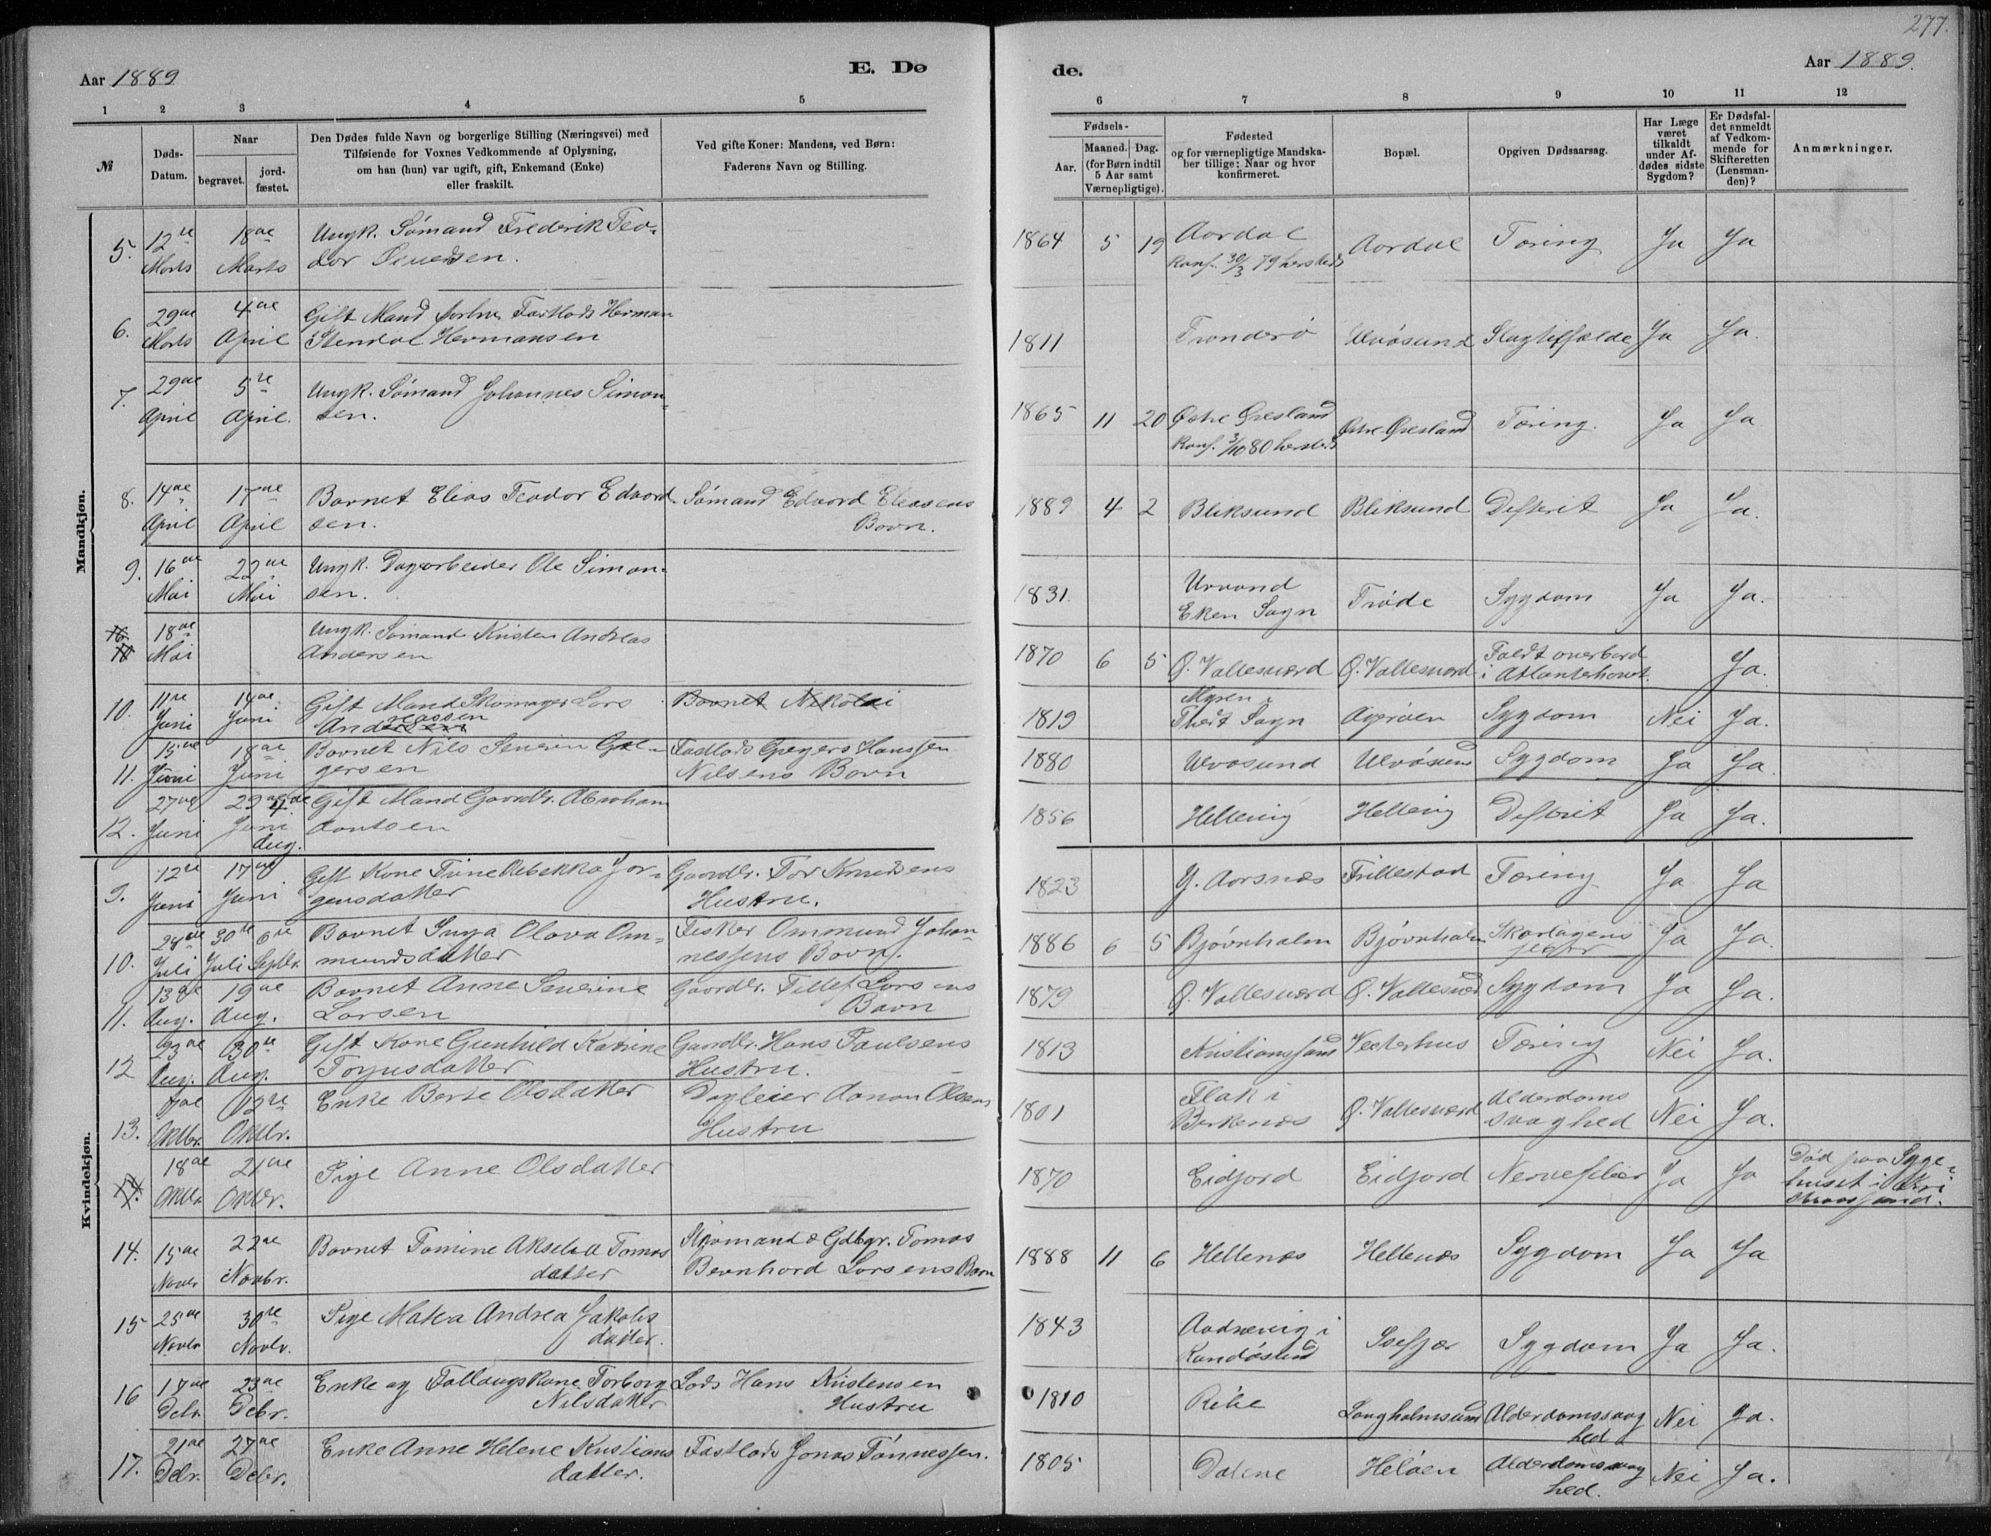 277.
Aar 1889
E. Dø
de.
Aar 1889.
1 2 3 4 5 6 7 8 9 10 11 12
№
Døds-
Datum.
Naar
begravet.
jord-
fæstet.
Den Dødes fulde Navn og borgerlige Stilling (Næringsvei) med
Tilføiende for Voxnes Vedkommende af Oplysning,
om han (hun) var ugift, gift, Enkemand (Enke)
eller fraskilt.
Ved gifte Koner: Mandens, ved Børn:
Faderens Navn og Stilling.
Fødsels-
Aar.
Maaned. Dag.
(for Børn indtil
5 Aar samt
Værnepligtige).
Fødested
og for værnepligtige Mandska-
ber tillige: Naar og hvor
konfirmeret.
Bopæl.
Opgiven Dødsaarsag.
Har Læge
været
tilkaldt
under Af-
dødes sidste
Sygdom?
Er Dødsfal-
det anmeldt
af Vedkom-
mende for
Skifteretten
(Lensman-
den)?
Anmærkninger.
Mandkjøn.
5. 12te 18de Ungk. Sømand Frederik Teo- 1864 5 19 Aardal Aardal Tæring Ja Ja
Marts Marts dor Konf. 30/3 79 hersteds
6. 29de 4de Gift Mand Fastlods Herman 1811 Tronderø Ulvøsund Slagtilfælde Ja Ja.
Marts April Stendal Hermansen
7. 29de 5te Ungk. Sømand Johannes Simon- 1865 11 20 Østre Øresland Østre Øresland Tæring. Ja Ja
April April. sen. Konf. 3/10 80 hersteds
8. 14de 17de Barnet Elias Teodor Edvard- Sømand Edvard Eleasens 1889 4 2 Bliksund Bliksund Difterit Ja Ja.
April April sen. Barn.
9. 16de 22de Ungk. Dagarbeider Ole Simon- 1831. Urvand Trøde Sygdom Ja Ja.
Mai Mai sen. Eken Sogn
18de Ungk. Sømand Kristen Andreas 1870 6 5 Ø. Vallesværd Ø. Vallesværd Faldt overbord Ja.
Mai Andersen i Atlanterhavet.
10. 11te 14de Gift Mand Skomager Lars Barnet Nikolai 1819 Myren i Ageröen Sygdom Nei Ja.
Juni Juni Andreassen Sogn
11. 15de 18de Barnet Nils Severin Gre- Fastlods Gregers Hanssen 1880 Ulvøsund Ulvøsund Sygdom Ja Ja.
Juni Juni gersen Nilsens Barn
12. 27de 29de 4de Gift Mand Gaardbr. Abraham 1856 Hellevig Hellevig Difterit Ja Ja.
Juni Juni Aug.
Kvindekjøn.
9. 12te 17de Gift Kone Trine Rebekka Jør- Gaardbr. Tor Knudsens 1823 Y. Aarsnæs Trillestad Tæring Ja Ja
Juni Juni gensdatter Hustru.
10. 28de 30te 6te Barnet Inga Olava Om- Fisker Ommund Johan- 1886 6 5 Bjørnholm Bjørnholm Skarlagens Ja Ja.
Juli Juli Septbr. mundsdatter nessens Barn. feber
11. 13de 19de Barnet Anne Severine Gaardbr. Tellef Larsens 1879 Ø. Vallesværd Ø. Vallesværd Sygdom Ja Ja.
Aug. Aug. Larsen Barn
12 23de 30te Gift Kone Gunhild Katrine Gaardbr. Hans Paulsens 1813 Kristianssand Vesterhus Tæring Nei Ja.
Aug. Aug. Torjusdatter Hustru.
13. 7de 12te Enke Berte Olsdatter Dagleier Olsens 1801 Flak i Ø. Vallesværd Alderdoms Nei Ja.
Oktbr. Oktbr. Hustru Birkenæs svaghed
18de 21de Pige Anne Olsdatter 1870 Eidjord Eidjord Nervefeber Ja Ja Død paa Syge-
Oktbr. Oktbr. huset i Kri
stianssand.
14. 15de 22de Barnet Tomine Akselia Tomas Styrmand & Gdbgr. Tomas 1888 11 6 Hellenæs Hellenæs Sygdom Ja Ja
Novbr Novbr. datter Bernhard Larsens Barn
15 25de 30te Pige Matea Andrea Jakobs 1843 Aadnevig i Isefjær Sygdom Ja Ja.
Novbr Novbr. datter. Randøsund
16 17de 23de Enke og Fattigkone Torborg Lods Hans Kristensen 1810 Ribe Langholmsund Alderdomssvag Nei Ja.
Debr. Debr. Nilsdatter Hustru hed
17. 21de 27de Enke Anne Helene Kristians Fastlods Jonas Tønnessen. 1805 Dalene Heløen Alderdomssvag Nei Ja.
Debr. Debr. datter. hed.